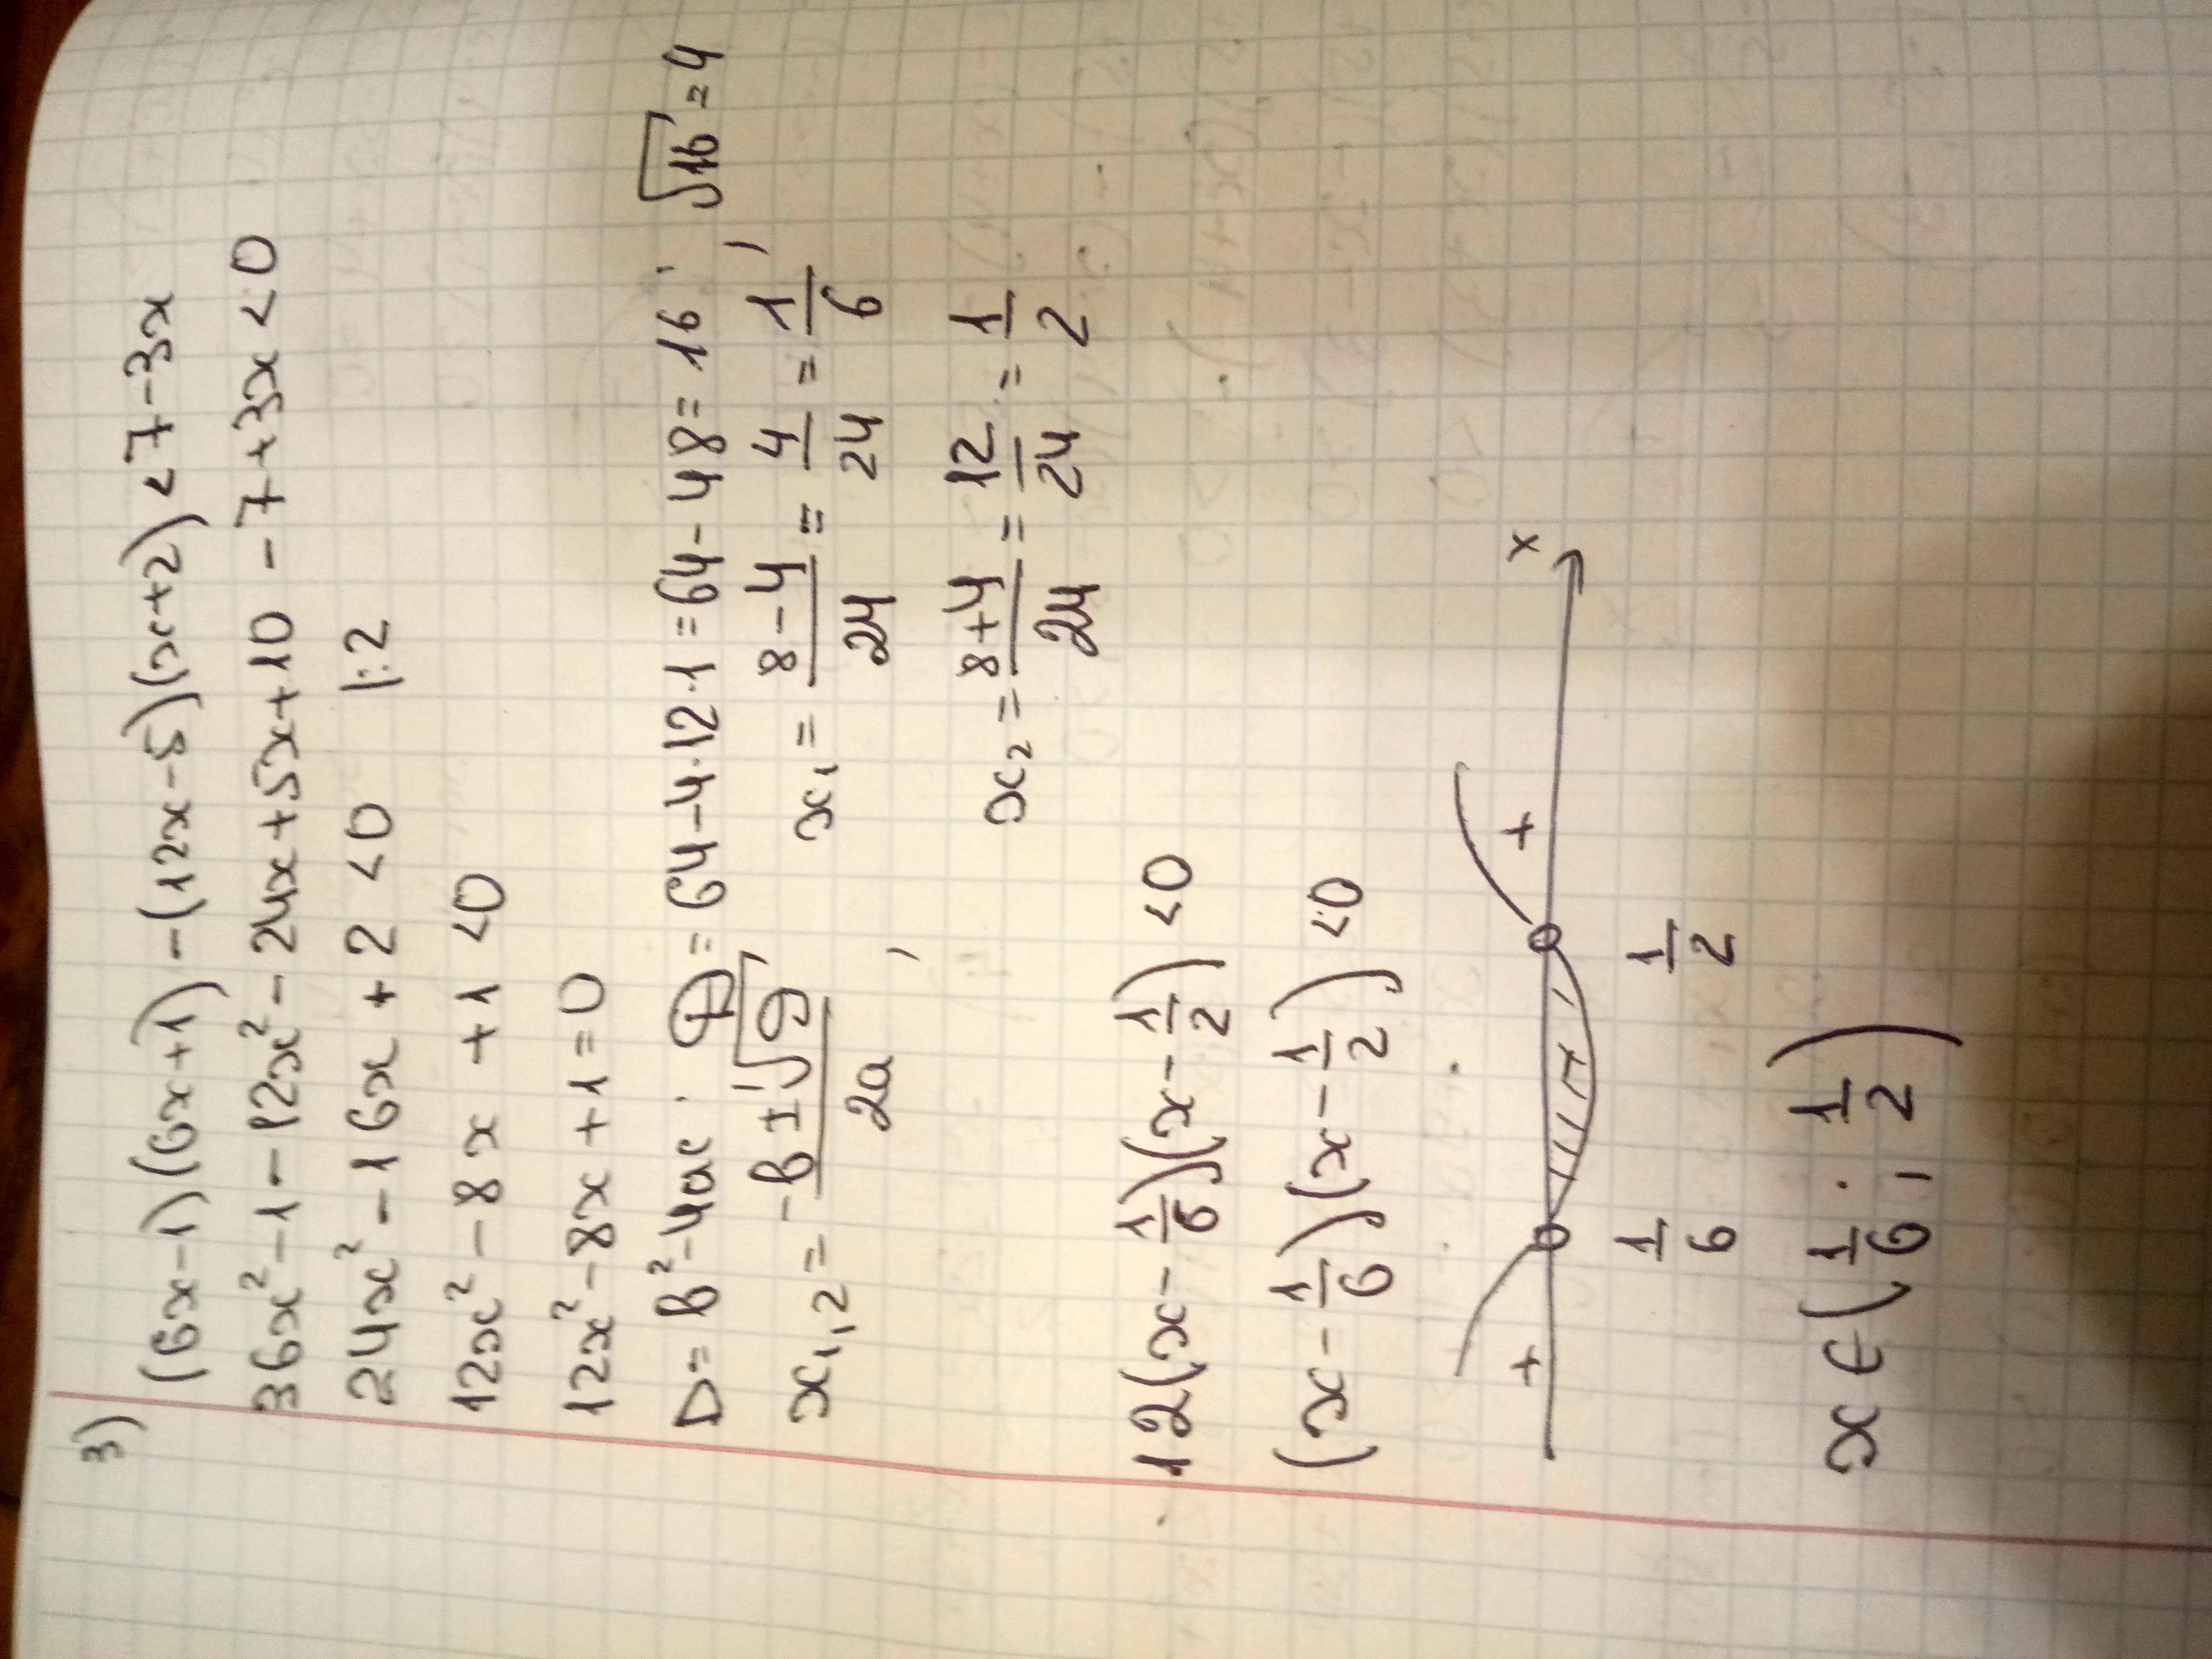 3)
(6x-1)(6x+1)-(12x-5)(x+2)<7-3x
36x²-1-12x²-24x+5x+10-7+3x<0
24x²-16x+2<0 |:2
12x²-8x+1<0
12x²-8x+1=0
D=b²-4ac; D=64-4·12·1=64-48=16; √16=4
x₁,₂=(-b±√D)/2a, x₁=(8-4)/24=4/24=1/6,
x₂=(8+4)/24=12/24=1/2
12(x-1/6)(x-1/2)<0
(x-1/6)(x-1/2)<0
+ + x
1/6 1/2
x∈(1/6;1/2)